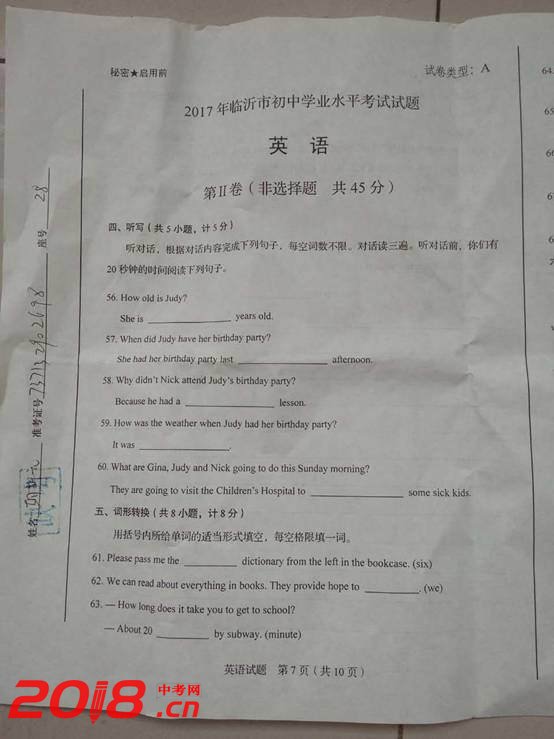 秘密★启用前
试卷类型：A
2017年临沂市初中学业水平考试试题
英 语
第Ⅱ卷（非选择题 共45分）
四、听写（共5小题，计5分）
听对话，根据对话内容完成下列句子，每空词数不限。对话读三遍。听对话前，你们有
20秒钟的时间阅读下列句子。
56. How old is Judy?
She is ____________ years old.
57. When did Judy have her birthday party?
She had her birthday party last ____________ afternoon.
58. Why didn't Nick attend Judy's birthday party?
Because he had a ____________ lesson.
59. How was the weather when Judy had her birthday party?
It was ____________.
60. What are Gina, Judy and Nick going to do this Sunday morning?
They are going to visit the Children's Hospital to ____________ some sick kids.
五、词形转换（共8小题，计8分）
用括号内所给单词的适当形式填空，每空格限填一词。
61. Please pass me the ________ dictionary from the left in the bookcase. (six)
62. We can read about everything in books. They provide hope to ________. (we)
63. — How long does it take you to get to school?
— About 20 ________ by subway. (minute)
英语试题 第7页（共10页）
姓名
准考证号
座号 28
64.
65
66
2018.cn
中考网